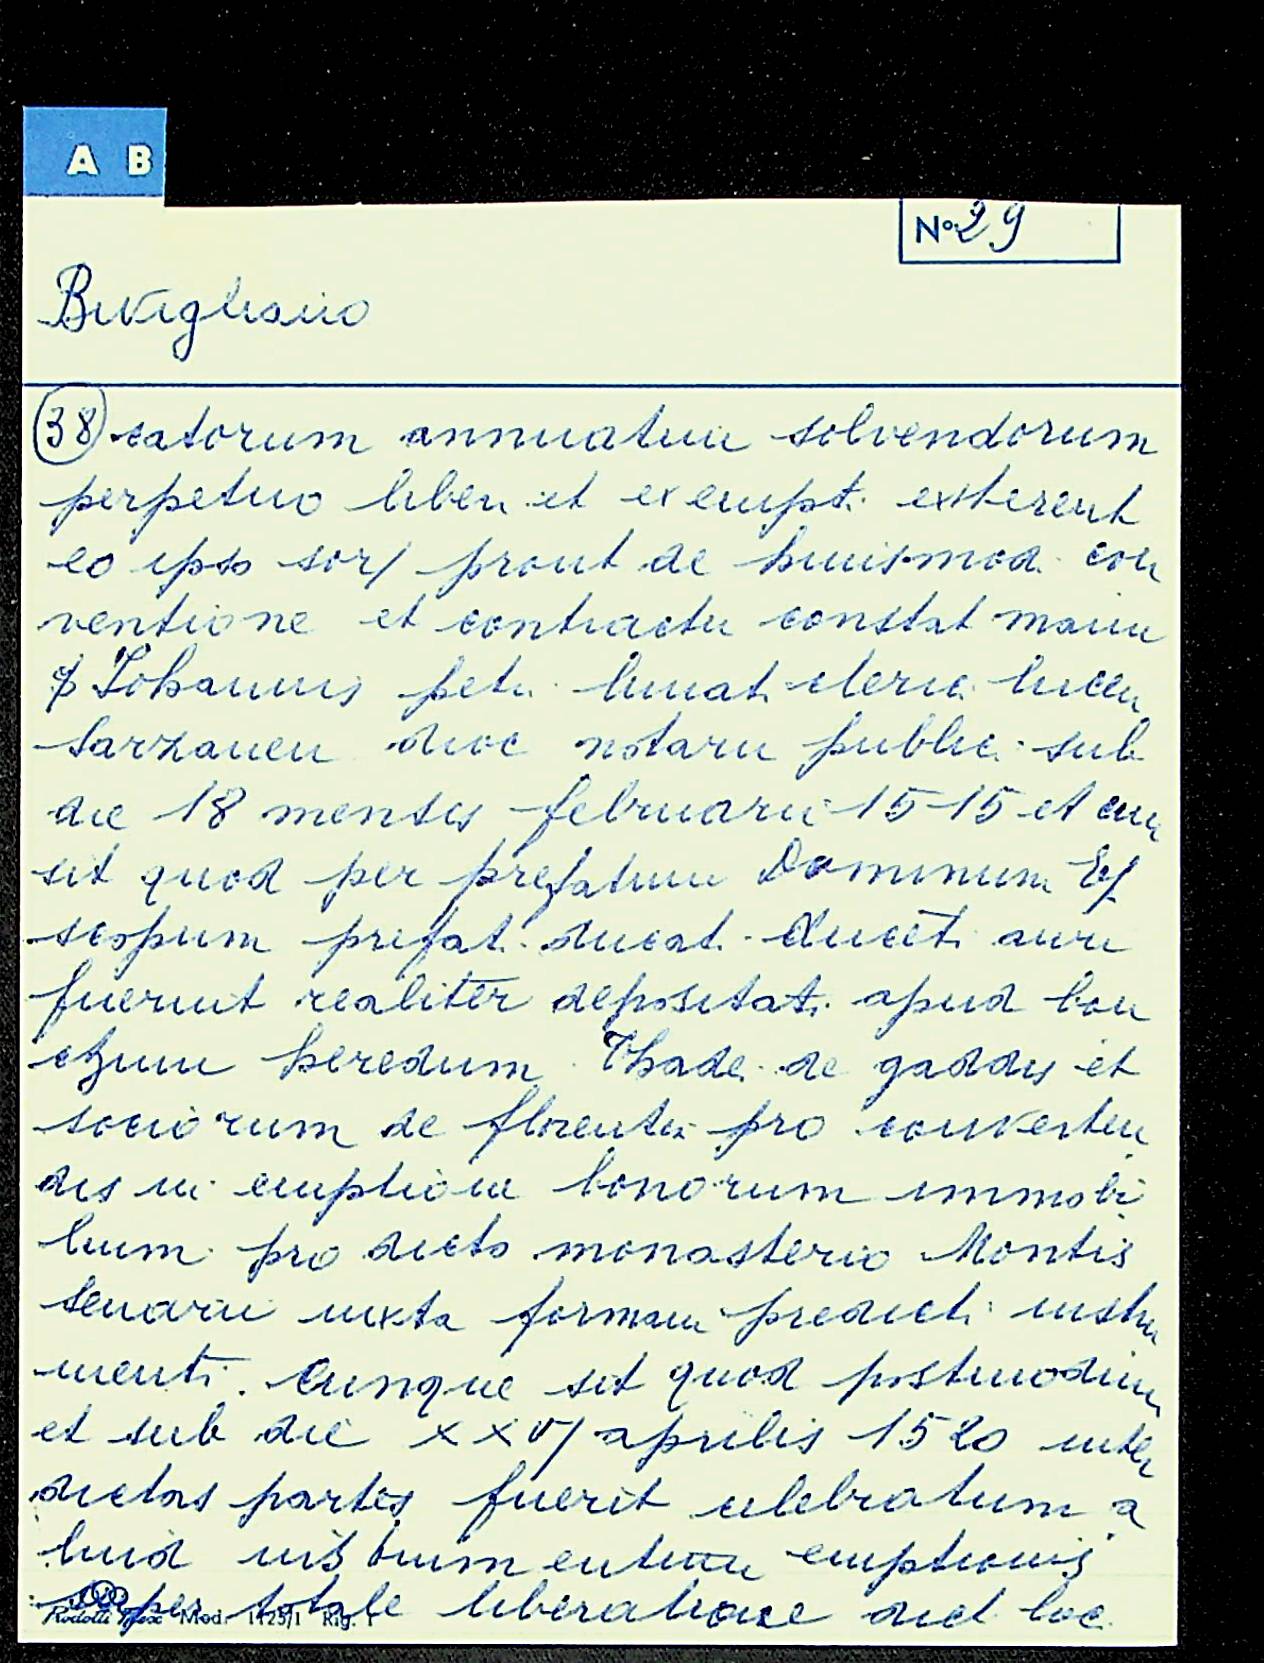 A B
No 29
Bivigliano
(38) catorum annuatim solvendorum
perpetuo liberi et exempt. existerent
eo ipso prout de huiusmod. con
ventione et contractu constat manu
Iohannis petri lunat. cleric. lucen
Sarzanen dioc notarii public. sub
die 18 mensis februarii 1515 et cum
sit quod per prefatum Dominum
scopum prefat. ducat. Ducēt. auri
fuerunt realiter depositat. apud ban
chum heredum Thade. de gaddis et
sociorum de florentia pro converten
dis in emptione bonorum immobi
lium pro dicto monasterio Montis
Senarii iuxta formam predicti instru
menti. Cunque sit quod postmodum
et sub die xxvj aprilis 1520 inter
dictas partes fuerit celebratum a
liud instrumentum emptionis
super totale liberatione dict loc.
Mod. Rig. 1